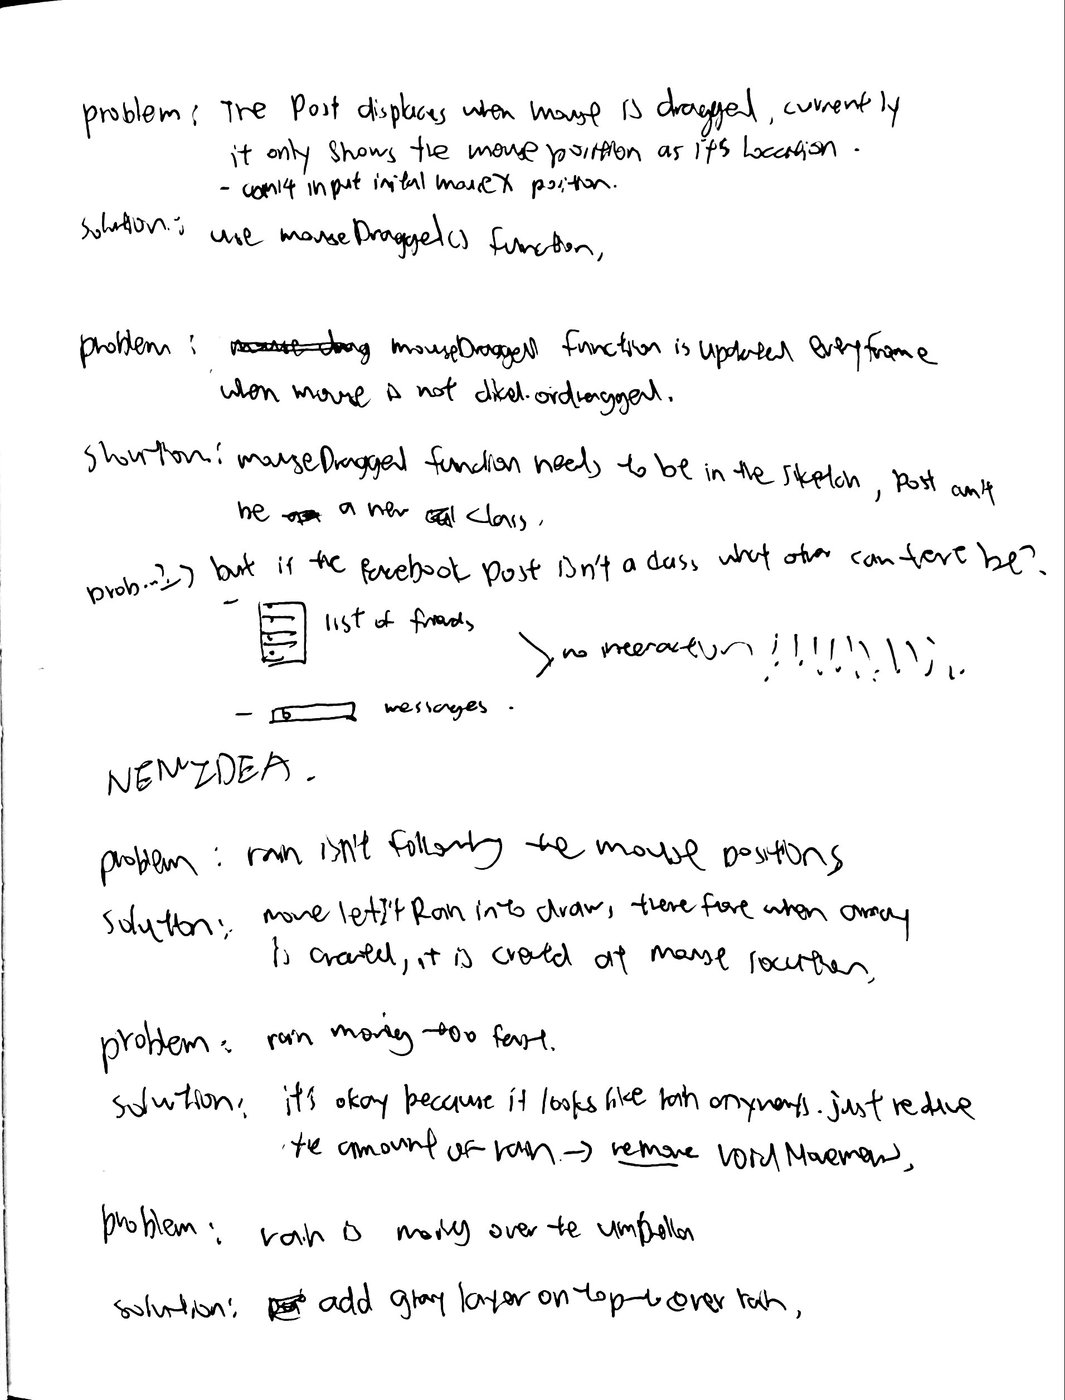 problem: The Post displaces when mouse is dragged, currently
it only shows the mouse position as it's location.
- can't input inital mouseX position.
solution: use mouseDragged() function,
problem: mouseDragged function is updated every frame
when mouse is not cliked. or dragged.
solution: mouseDragged function needs to be in the sketch, post can't
be a new class.
prob...?) but if the facebook post isn't a class what other can there be?
- list of friends
> no interaction !!!!!!!!!!
- messages.
NEW IDEA.
problem: rain isn't following the mouse positions
solution: move letItRain into draw, therefore when array
is created, it is created at mouse location,
problem: rain moving too fast.
solution: it's okay because it looks like rain anyways. just reduce
the amount of rain. → remove void Movement,
problem: rain is moving over the umbrella
solution: add gray layer on top to cover rain,